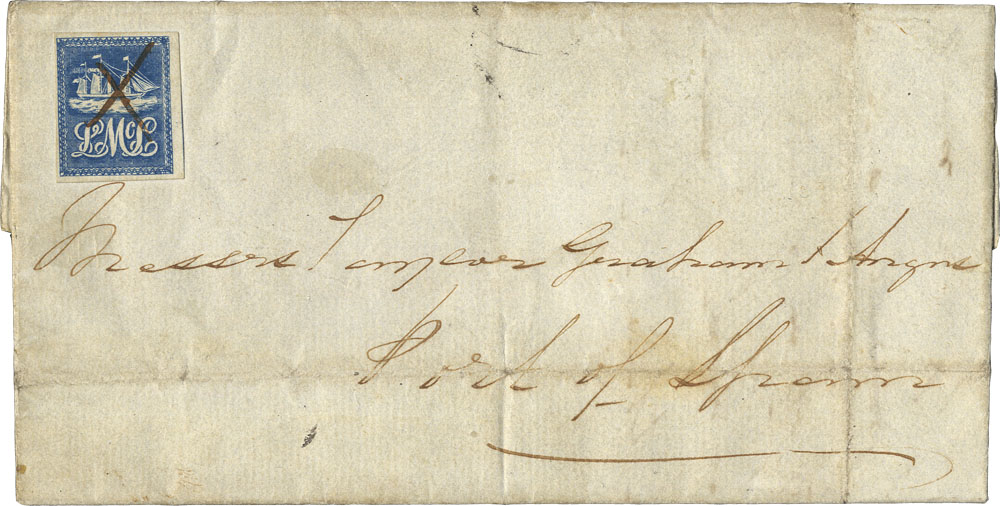 LMcL
Messrs Graham & Angus
Port of Spain